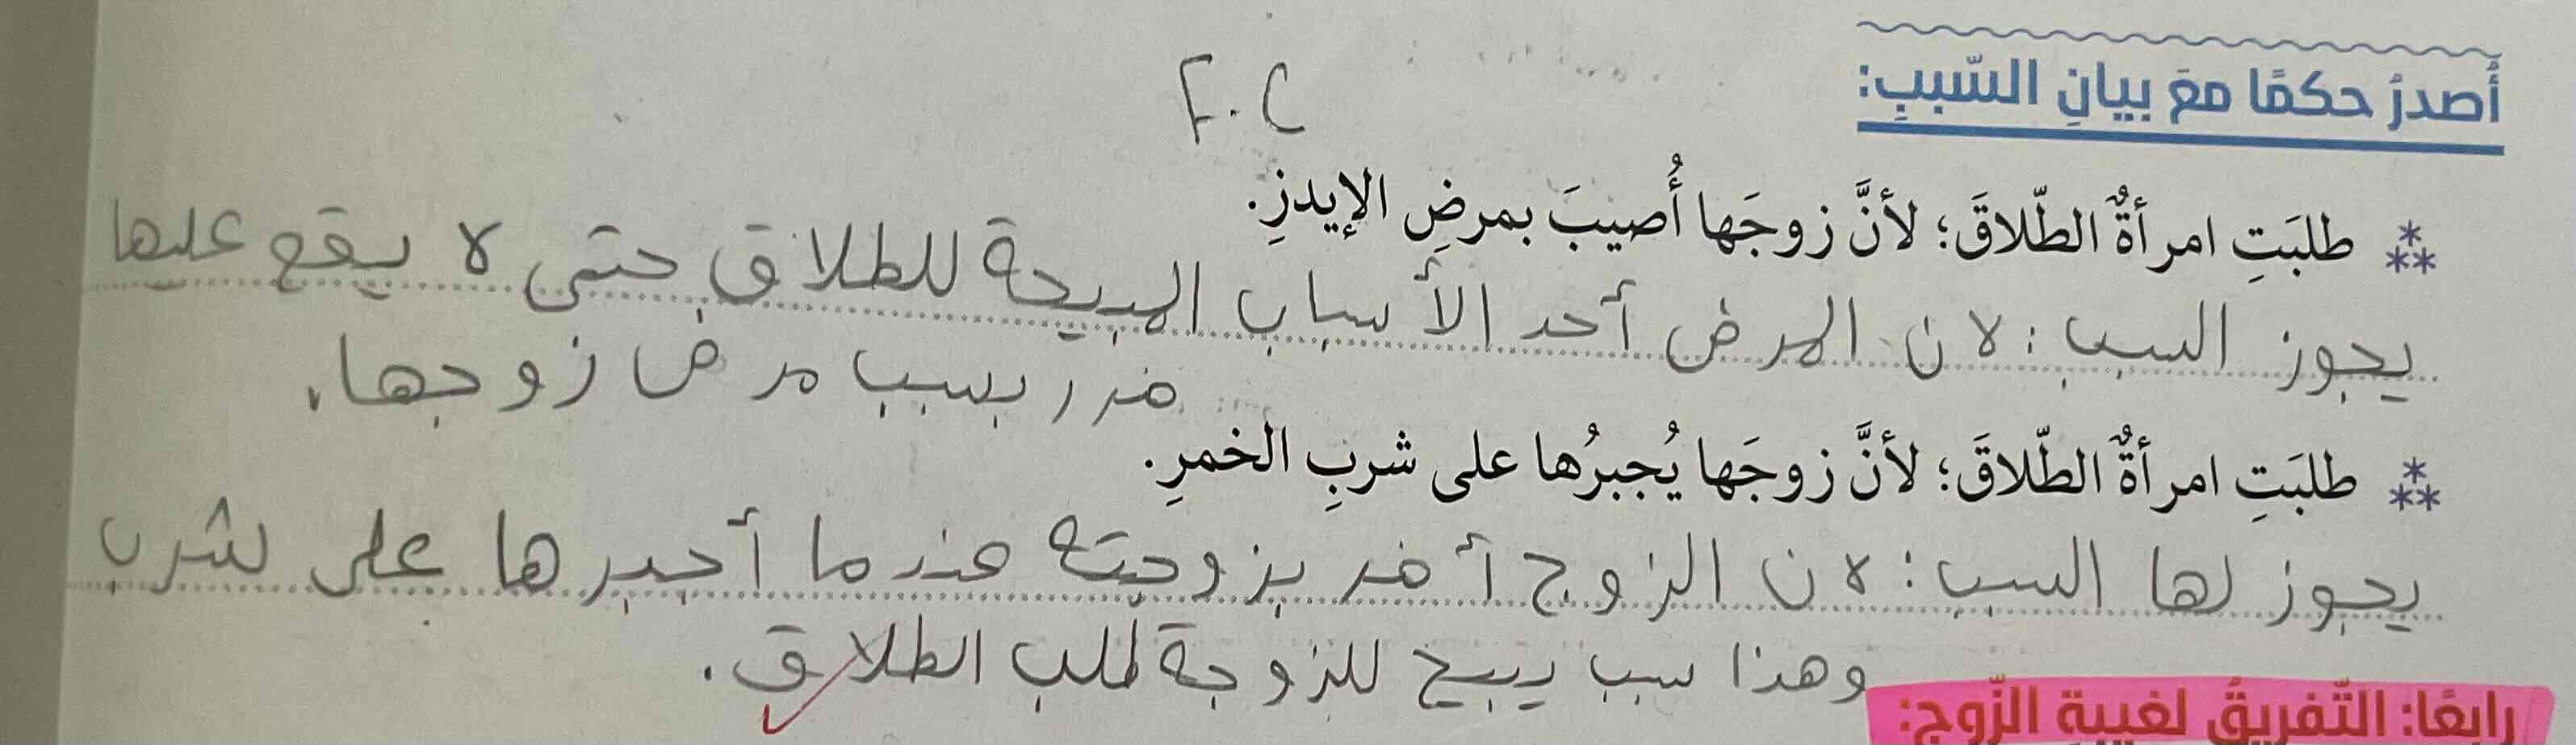 أُصدرُ حكمًا معَ بيانِ السّببِ:
٢٠٢
طلبَتِ امرأةٌ الطّلاقَ؛ لأنَّ زوجَها أُصيبَ بمرضِ الإيدزِ.
يجوز السبب: لان المرض أحد الأسباب المبيحة للطلاق حتى لا يقع عليها
ضرر بسبب مرض زوجها.
طلبَتِ امرأةٌ الطّلاقَ؛ لأنَّ زوجَها يُجبرُها على شربِ الخمرِ.
يجوز لها السبب: لان الزوج أضر بزوجته عندما أجبرها على شرب
وهذا سبب يبيح للزوجة طلب الطلاق.
رابعًا: التّفريقُ لغيبةِ الزّوجِ: